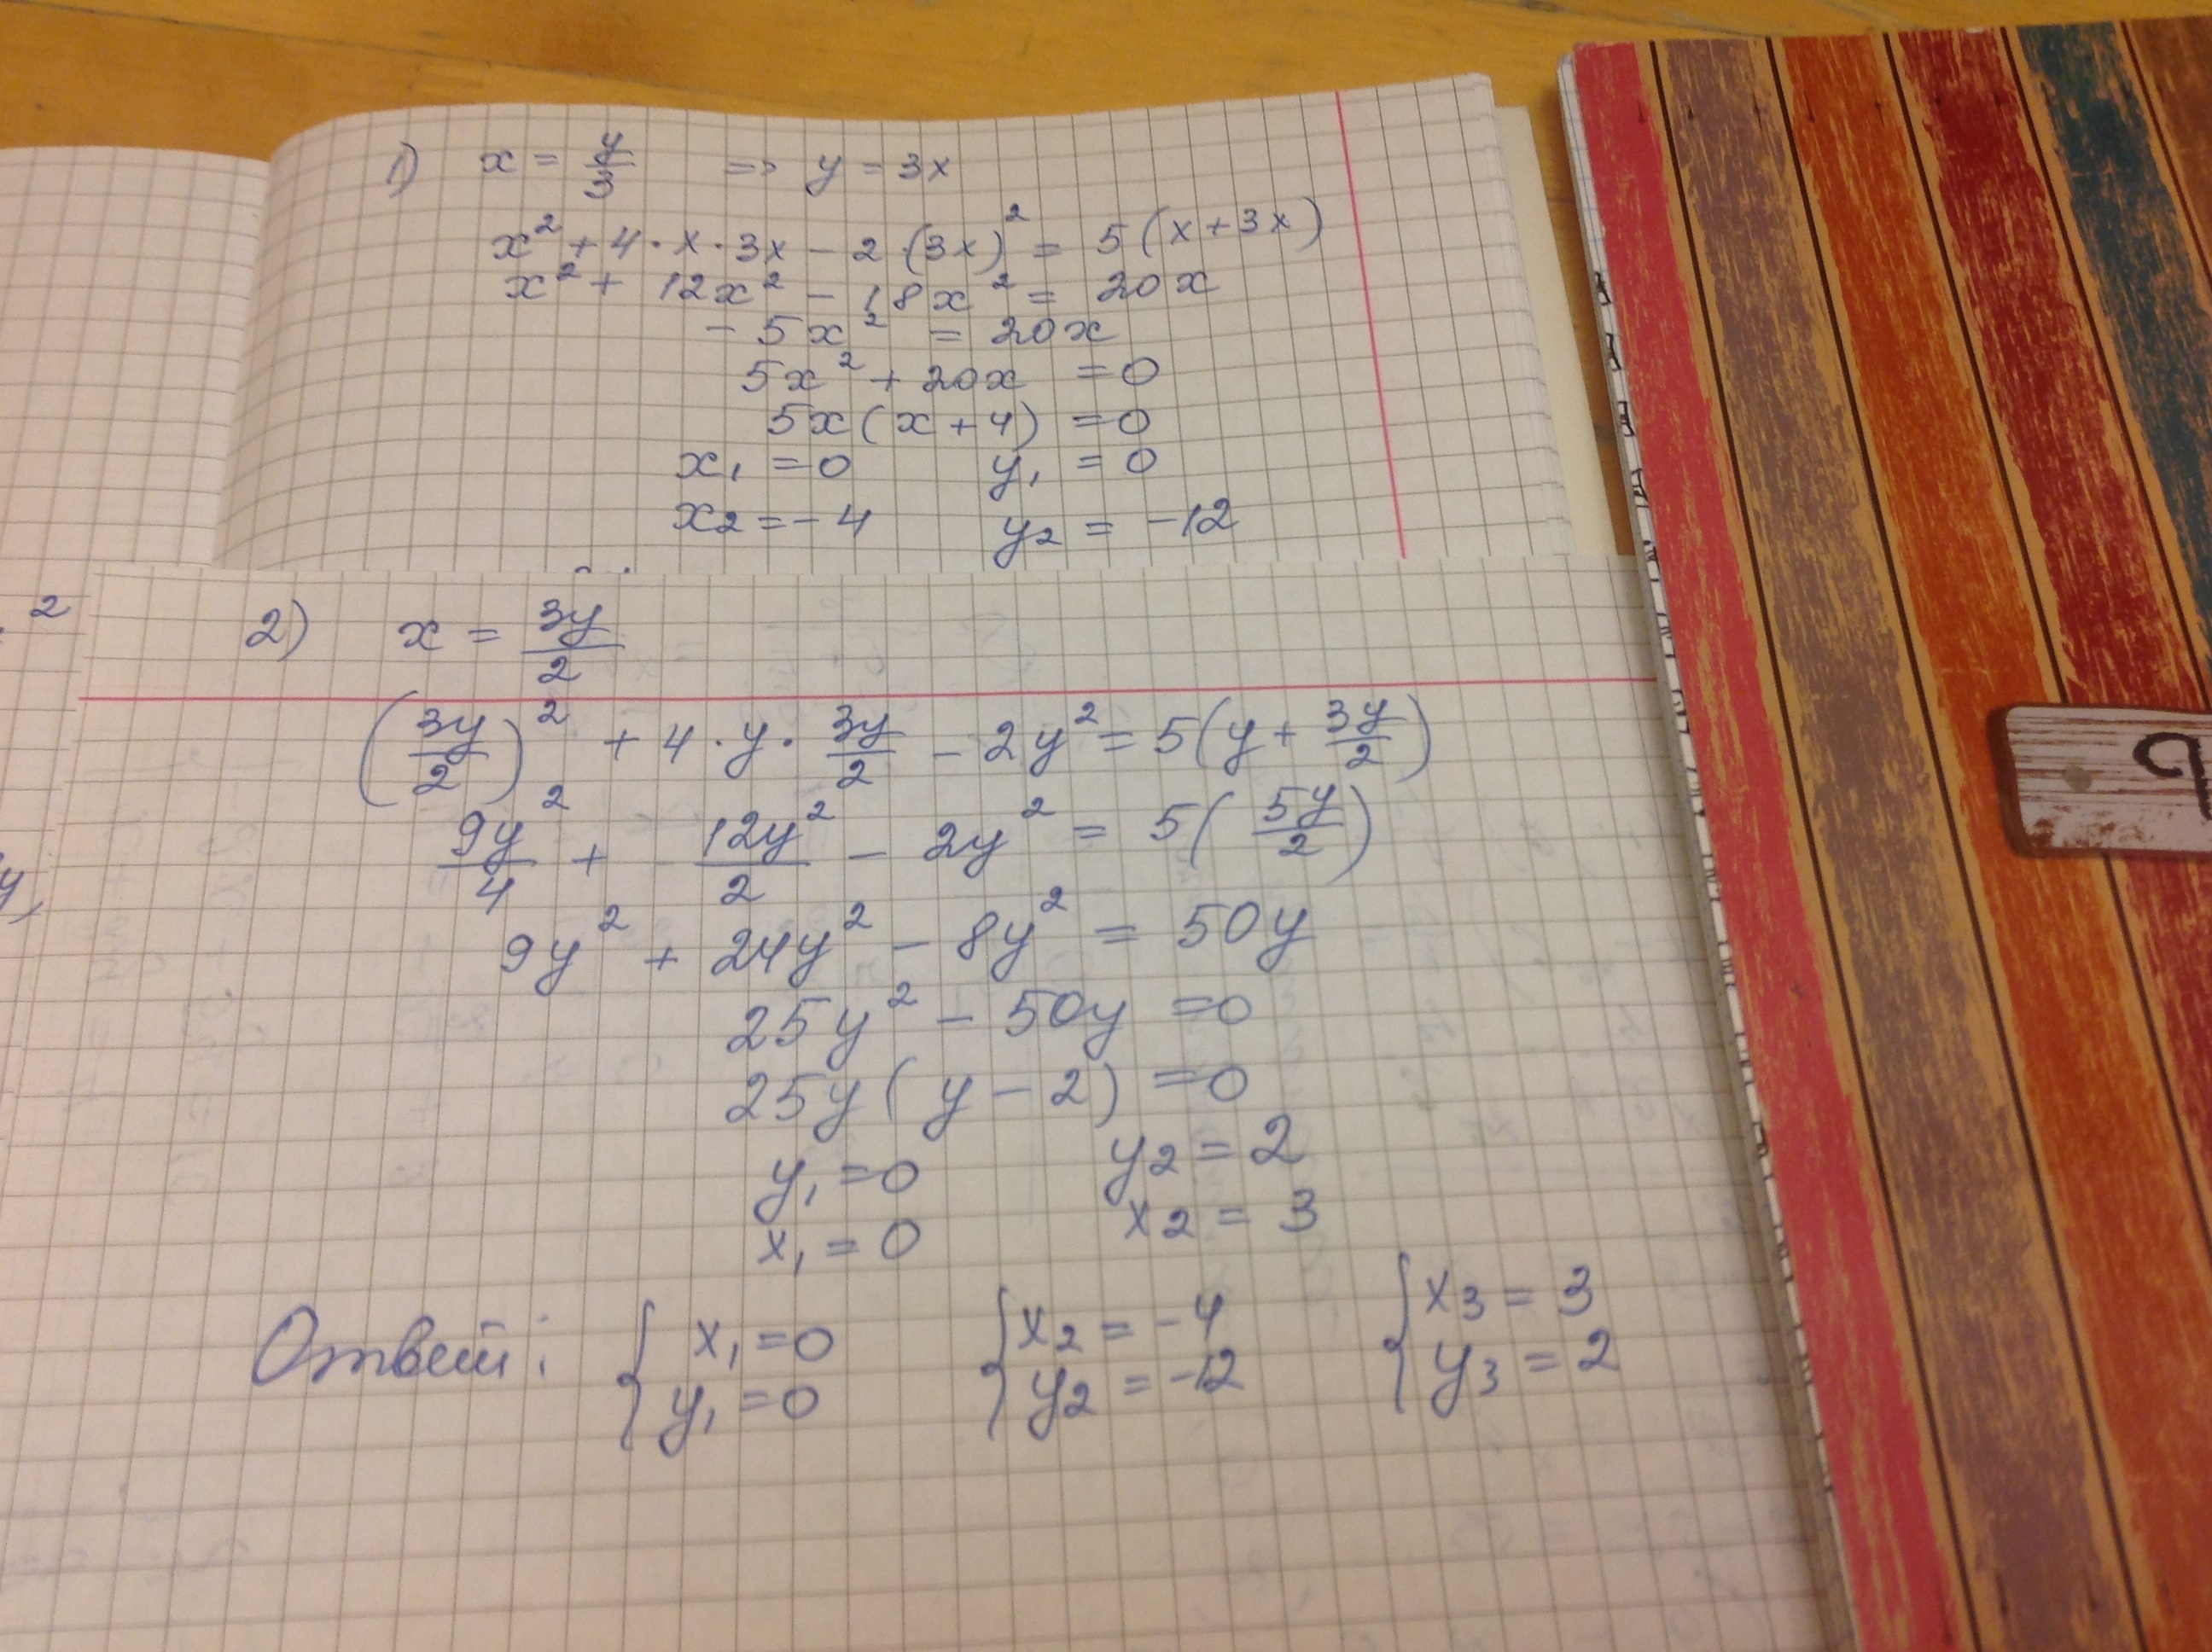 1) x = y/3 => y = 3x
x² + 4·x·3x − 2·(3x)² = 5(x+3x)
x² + 12x² − 18x² = 20x
−5x² = 20x
5x² + 20x = 0
5x(x+4) = 0
x₁ = 0 y₁ = 0
x₂ = −4 y₂ = −12
2
2) x = 3y/2
(3y/2)² + 4·y·3y/2 − 2y² = 5(y + 3y/2)
9y²/4 + 12y²/2 − 2y² = 5(5y/2)
9y² + 24y² − 8y² = 50y
y,
25y² − 50y = 0
25y(y−2) = 0
y₁ = 0 y₂ = 2
x₁ = 0 x₂ = 3
Ответ: { x₁ = 0 { x₂ = −4 { x₃ = 3
y₁ = 0 y₂ = −12 y₃ = 2